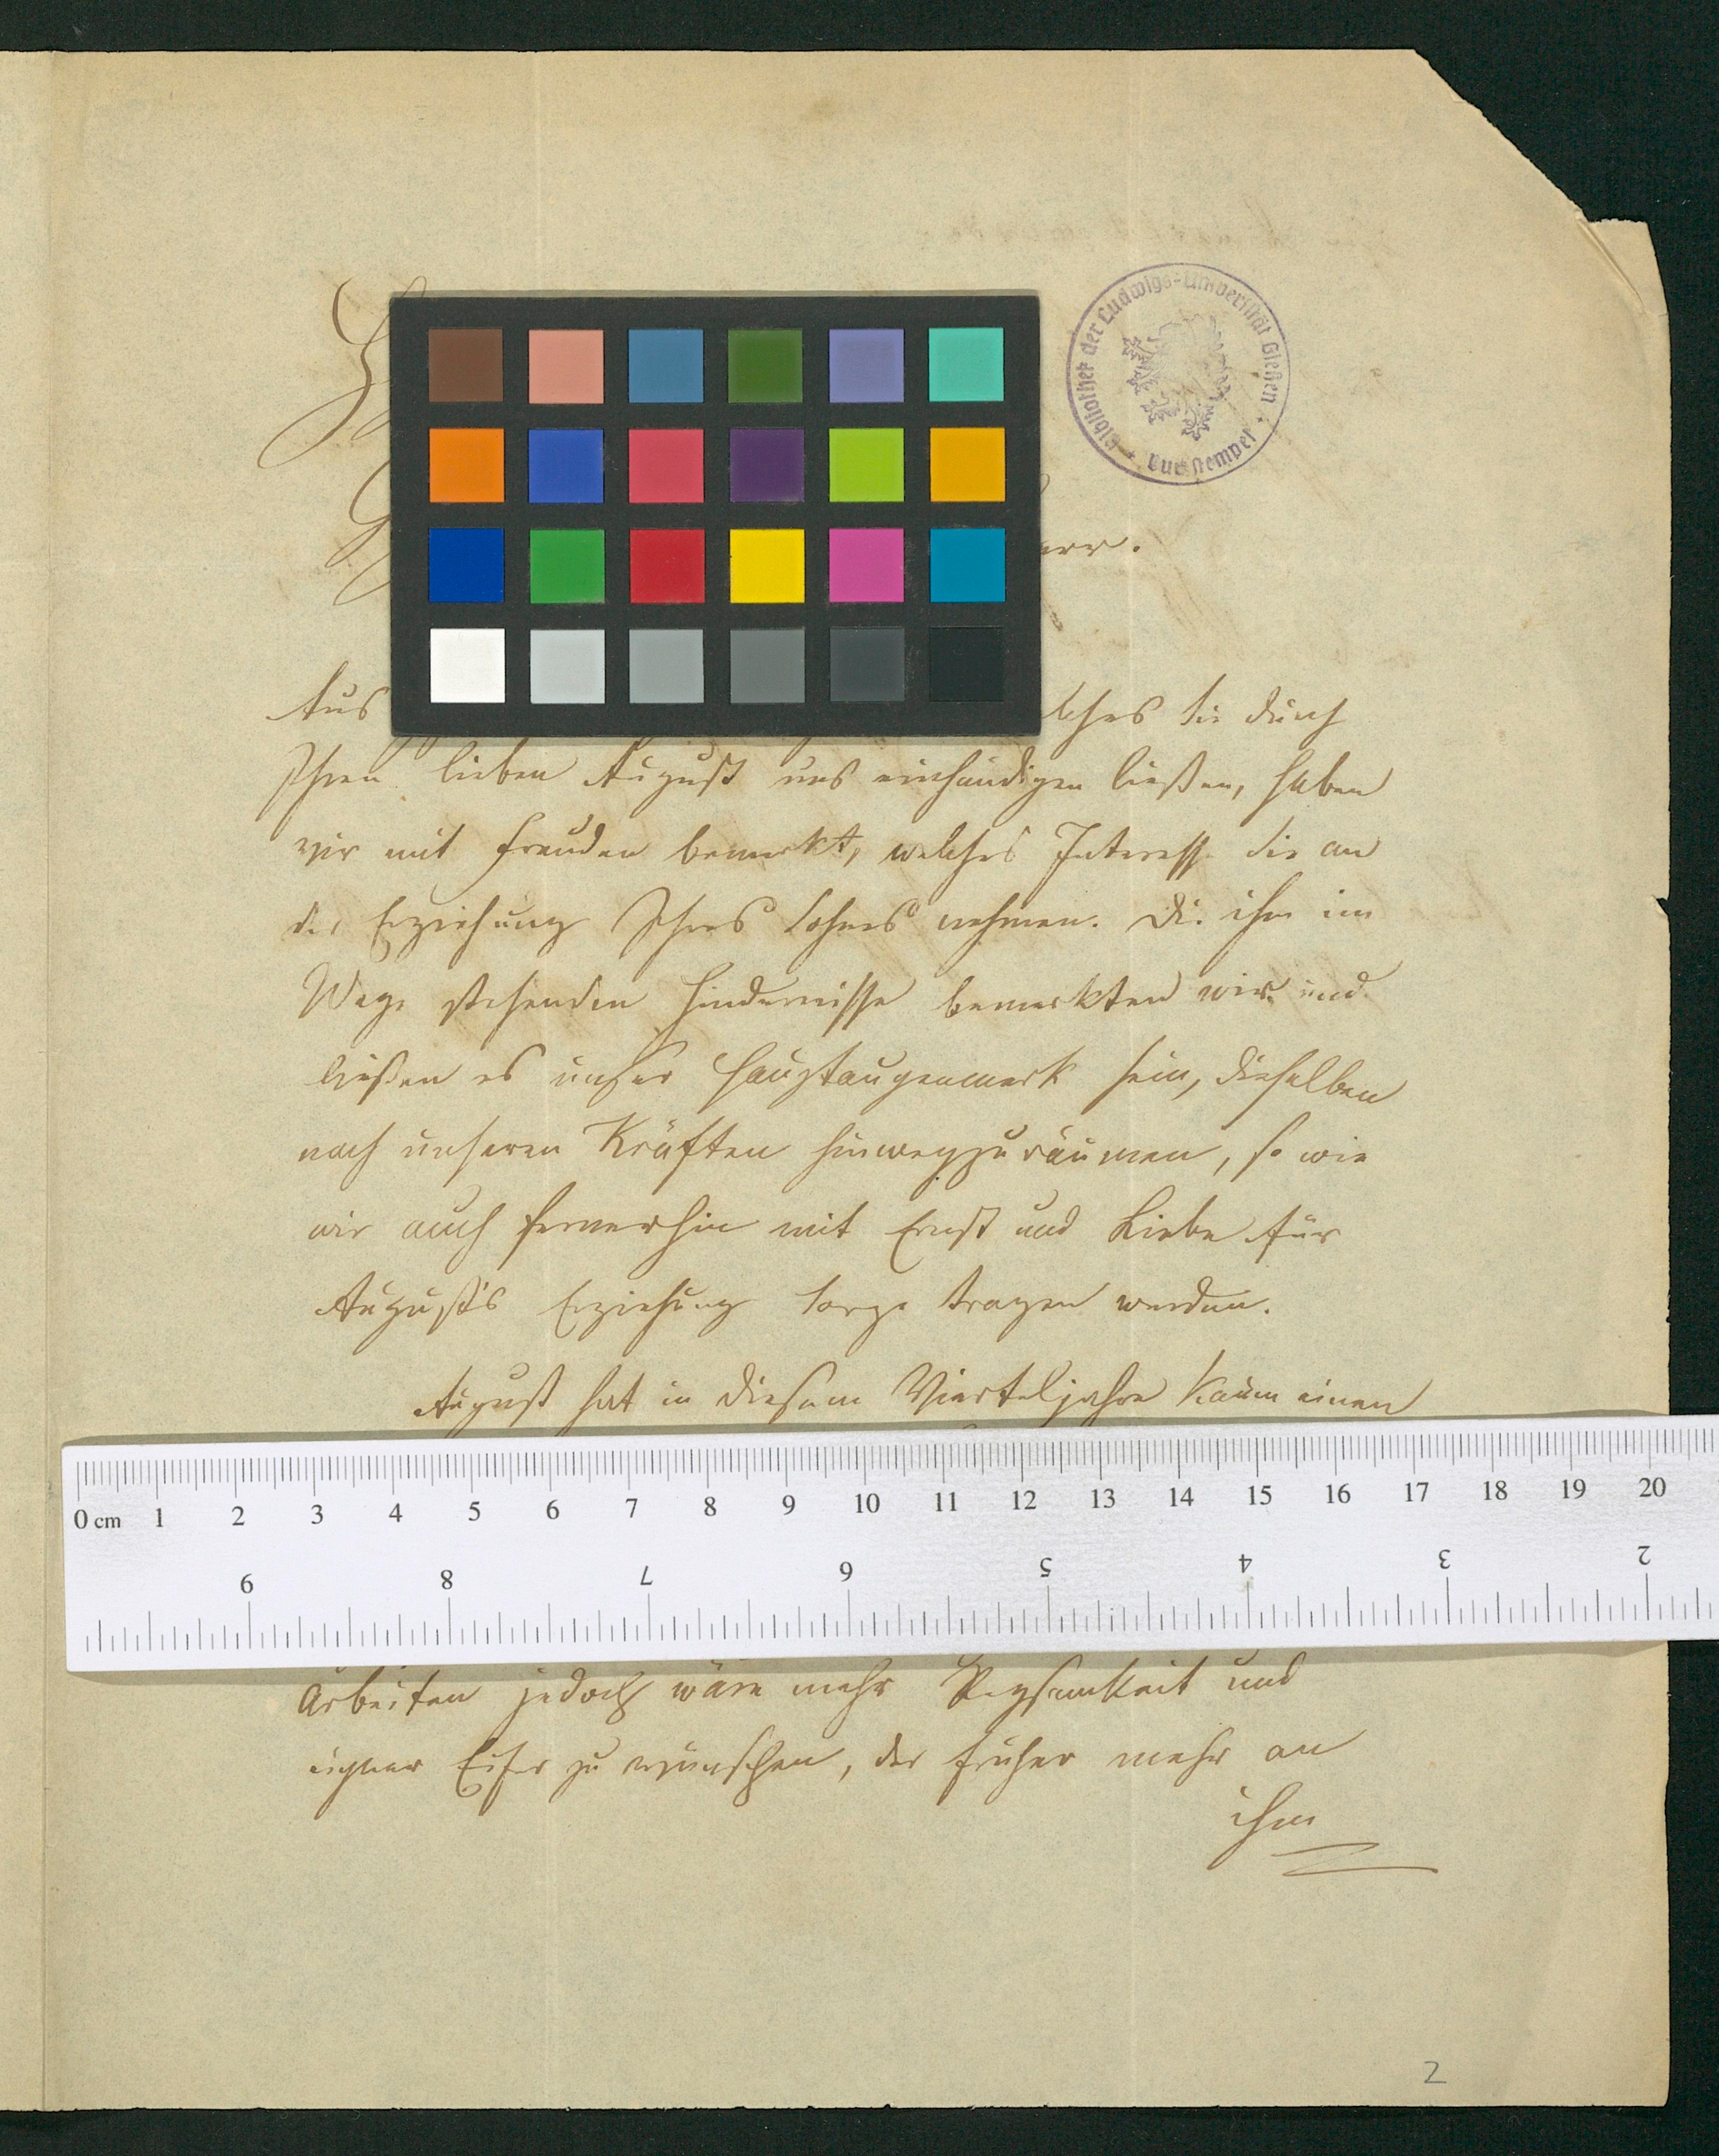 Bibliothek der Ludwigs-Universität Gießen
err.
Aus lches Sie durch
Ihren lieben August uns einhändigen ließen, haben
wir mit Freuden bemerkt, welches Interesse Sie an
der Erziehung Ihres Sohnes nehmen. Die ihm im
Wege stehenden Hindernisse bemerkten wir und
ließen es unser Hauptaugenmerk sein, dieselben
nach unseren Kräften hinwegzuräumen, so wie
wir auch fernerhin mit Ernst und Liebe für
August's Erziehung Sorge tragen werden.
August hat in diesem Vierteljahre kaum einen
0 cm 1 2 3 4 5 6 7 8 9 10 11 12 13 14 15 16 17 18 19 20
9 8 7 6 5 4 3 2
Arbeiten jedoch wäre mehr Regsamkeit und
eigner Eifer zu wünschen, der früher mehr an
ihm
2